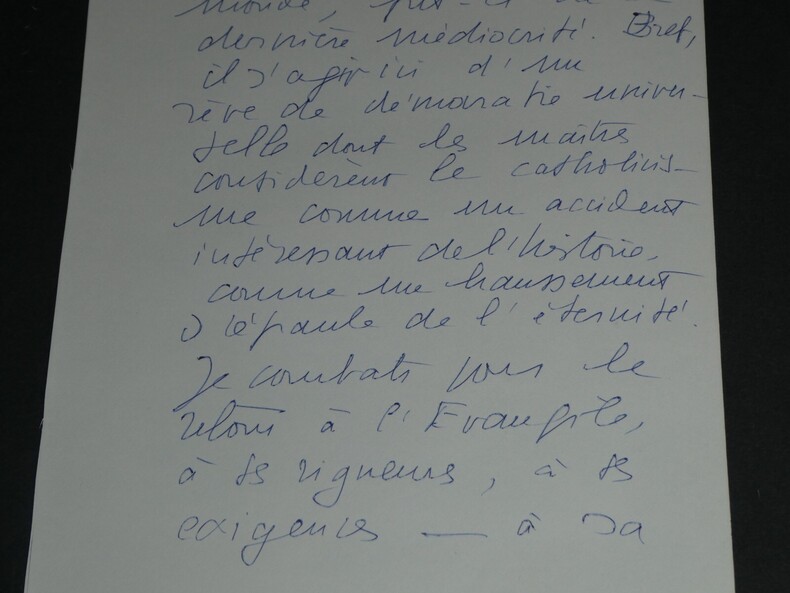 monde, fût-ce sa
dernière médiocrité. Bref,
il s'agit ici d'un
rêve de démocratie univer-
selle dont les maîtres
considèrent le catholicis-
me comme un accident
intéressant de l'histoire,
comme un haussement
d'épaule de l'éternité.
Je combats pour le
retour à l'Evangile,
à ses rigueurs, à ses
exigences — à sa